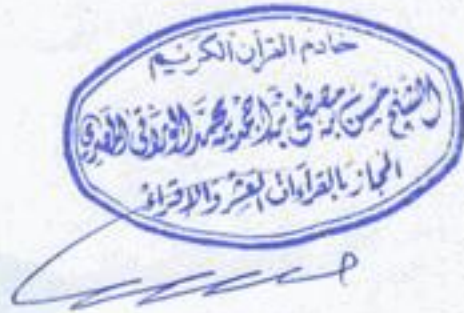 خادم القرآن الكريم
الشيخ حسن بن مصطفى بن احمد بن محمد الوراقي المصري
المجاز بالقراءات العشر والإقراء